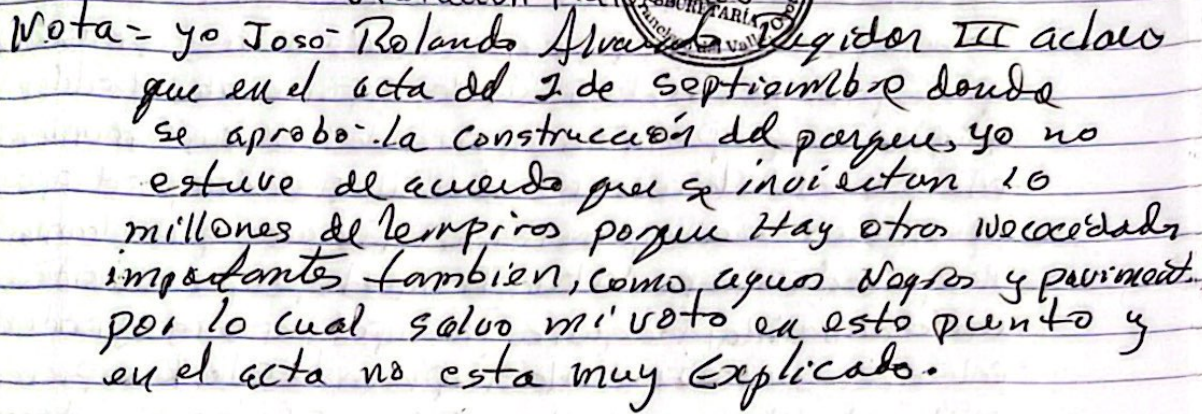 SECRETARIA
Nota = yo José Rolando Alvarado Regidor III aclaro
que en el acta del 1 de septiembre donde
se aprobó la construcción del parque, yo no
estuve de acuerdo que se inviertan 10
millones de lempiras porque Hay otras Nececedades
importantes tambien, como aguas Negras y paviment.
por lo cual salvo mi voto en este punto y
en el acta no esta muy Explicado.